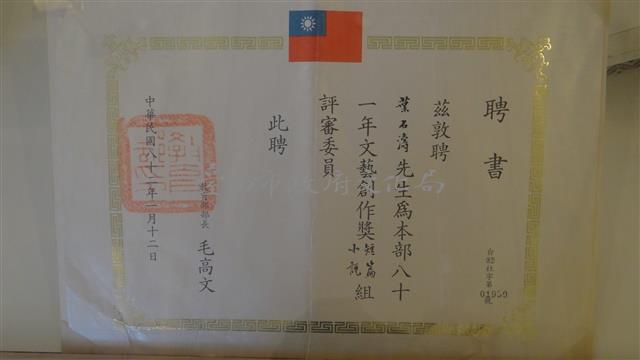 聘書
台㈧社字第01950號
茲敦聘
葉石濤先生為本部八十
一年文藝創作獎短篇小說組
評審委員
此聘
教育部部長 毛高文
中華民國八十二年一月十二日